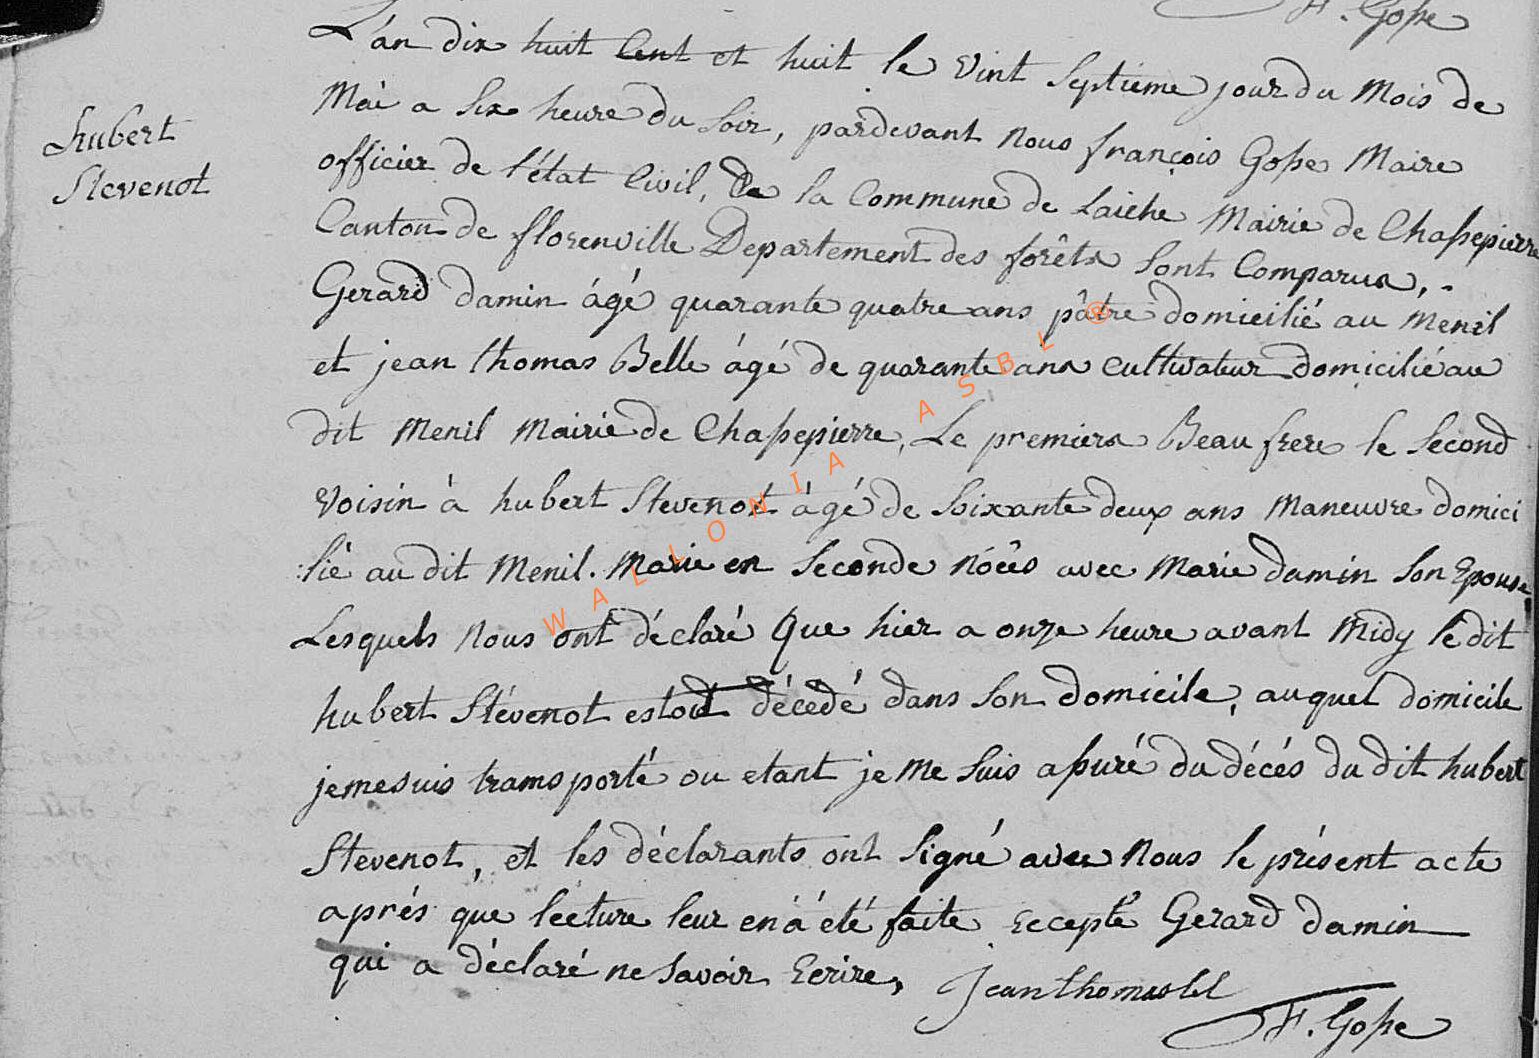 F. Gosse
L'an dix huit Cent et huit le vint Septième jour du Mois de
Mai a Six heure du Soir, pardevant Nous françois Gosse Maire
officier de l'état Civil, de la Commune de Laiche Mairie de Chassepierre
Canton de florenville Departement des forêts Sont Comparus,.
Gerard damin ágé quarante quatre ans pâtre domicilié au Menil
et jean thomas Belle ágé de quarante ans cultivateur domicilié au
dit Menil Mairie de Chassepierre, Le premiers Beau frere le Second
Voisin à hubert Stevenot ágé de Soixante deux ans Maneuvre domici
lié au dit Menil. Marie en Seconde nóces avec Marie damin Son Epouse
Lesquels Nous ont déclaré Que hier a onze heure avant Midy le dit
hubert Stévenot estoit décedé dans Son domicile, auquel domicile
je me suis transporté ou etant je Me Suis assuré du décés du dit hubert
Stevenot, et les déclarants ont Signé avec Nous le présent acte
aprés que lecture leur en á été faite Eccepté Gerard damin
qui a déclaré ne Savoir Ecrire,
Jean thomas bel
F. Gosse
hubert
Stevenot
WALLONIA ASBL ®